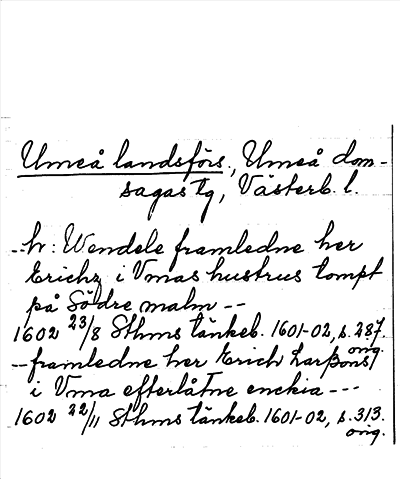 Umeå landsförs., Umeå dom-
sagas tg, Västerb. l.
-- hr: Wendele framledne her
Erichz i Vmas hustrus tompt
på Södre malm --
1602 23/8 Sthms tänkeb. 1601-02, s. 287.
orig.
-- framledne her Erich Larßons
i Vma efterlåtne enckia ---
1602 22/11 Sthms tänkeb. 1601-02, s. 313.
orig.